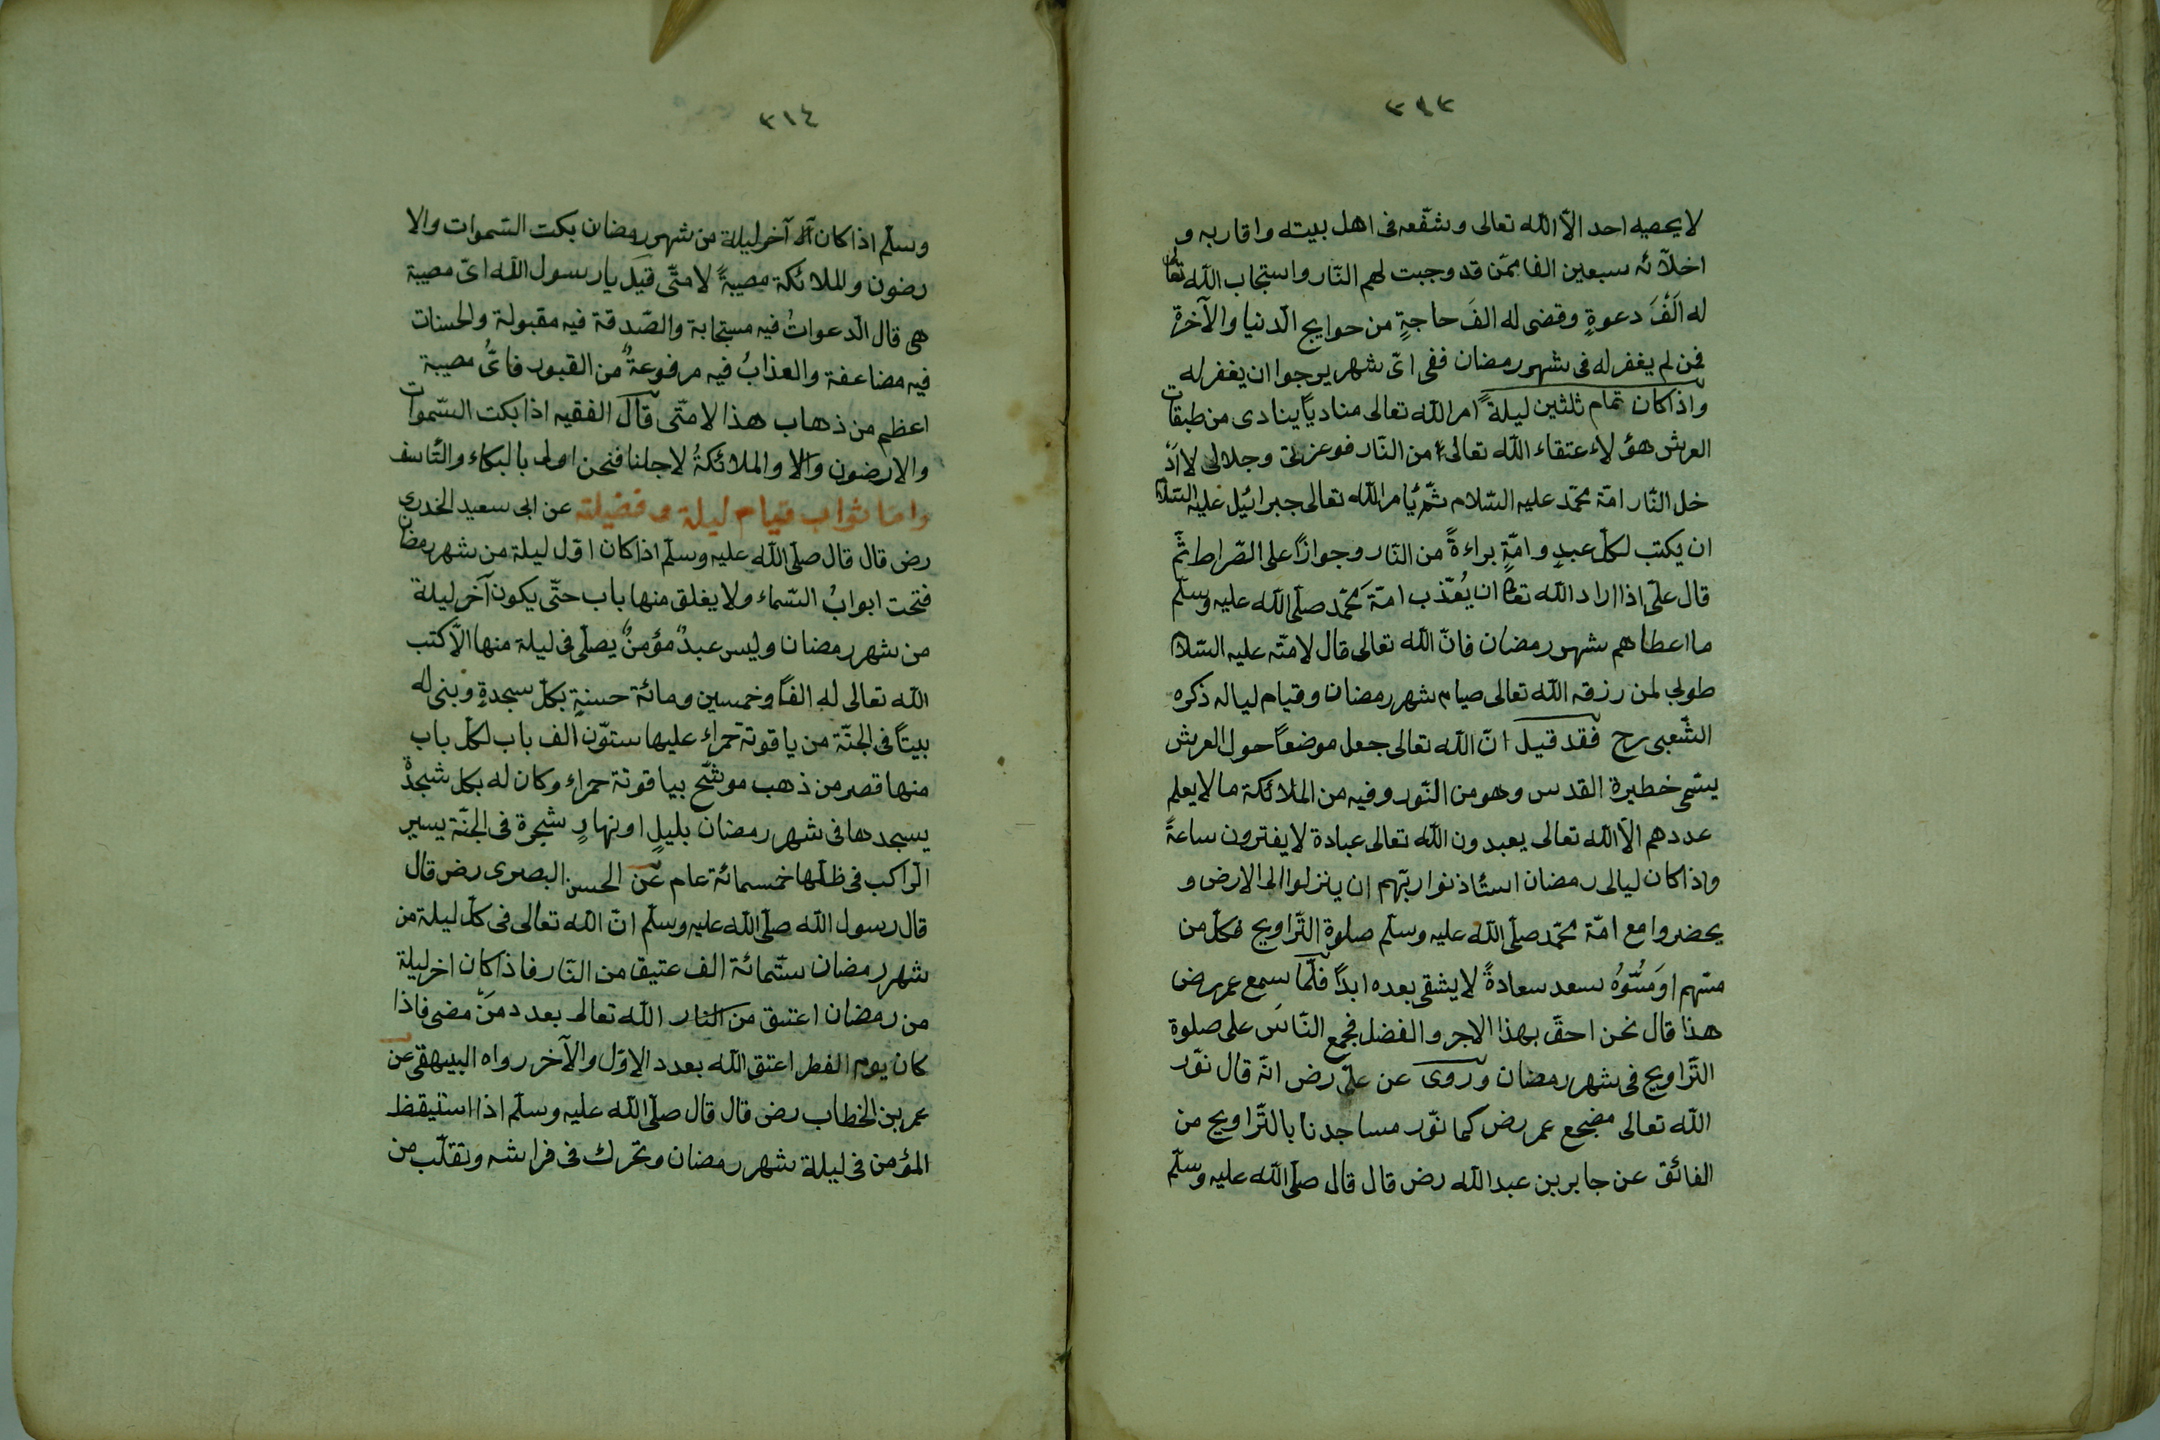 ٣١٣
لا يحصيه احد الّا الله تعالى وشفّعه فى اهل بيته واقاربه و
اخلّائه سبعين الفا ممّن قد وجبت لهم النّار واستجاب الله تعالى
له اَلْفَ دعوةٍ وقضى له الفَ حاجةٍ من حوايج الدّنيا والآخرة
فمن لم يغفر له فى شهر رمضان ففى اىّ شهر يرجوا ان يغفر له
واذا كان تمام ثلثين ليلةً امر الله تعالى منادياً ينادى من طبقات
العرش هؤلاء عتقاء الله تعالى من النّار فوعزتى وجلالى لا اد
خل النّار امّة محمّد عليه السّلام ثمّ يأمر الله تعالى جبرائيل عليه السّلام
ان يكتب لكلّ عبدٍ وامّةٍ براءةً من النّار وجوازاً على الصّراط ثمّ
قال علىّ اذا اراد الله تعالى ان يُعذّب امّة محمّد صلّى الله عليه وسلّم
ما اعطاهم شهر رمضان فانّ الله تعالى قال لامتّه عليه السّلام
طوبى لمن رزقه الله تعالى صيام شهر رمضان وقيام لياله ذكره
الشّعبى رح فقد قيل انّ الله تعالى جعل موضعاً حول العرش
يسّمى خطيرة القدس وهو من النّور وفيه من الملائكة ما لا يعلم
عددهم الّا الله تعالى يعبدون الله تعالى عبادة لا يفترون ساعةً
واذا كان ليالى رمضان استأذنوا ربّهم ان ينزلوا الى الارض و
يحضروا مع امّة محمّد صلّى الله عليه وسلّم صلوة التّراويج فكلّ من
مسّهم اوَ مَسُّوْهُ سعد سعادةً لا يشقى بعده ابداً فلّما سمع عمر رض
هذا قال نحن احقّ بهذا الاجر والفضل فجمع النّاسَ على صلوة
التّراويج فى شهر رمضان وروى عن علىّ رض انّه قال نوّر
الله تعالى مضجع عمر رض كما نوّر مساجدنا بالتّراويج من
الفائق عن جابر بن عبد الله رض قال قال صلّى الله عليه وسلّم
٣١٤
وسلّم اذا كان آخر ليلة من شهر رمضان بكت السّموات والا
رضون والملائكة مصيبةً لامتّى قيل يا رسول الله اىّ مصيبة
هى قال الدّعواتُ فيه مستجابة والصّدقة فيه مقبولة والحسنات
فيه مضاعفة والعذابُ فيه مرفوعةٌ من القبور فاىُّ مصيبة
اعظم من ذهاب هذا لامتّى قال الفقيه اذا بكت السّموات
والارضون والا والملائكةُ لاجلنا فنحن اولى بالبكاء والتّاسف
واما ثواب قيام ليلة من فضيلته عن ابى سعيد الخدرى
رض قال قال صلّى الله عليه وسلّم اذا كان اوّل ليلة من شهر رمضان
فتحت ابوابُ السّماء ولا يغلق منها باب حتّى يكون آخر ليلة
من شهر رمضان وليس عبدٌ مؤمنٌ يصلّى فى ليلة منها الّا كتب
الله تعالى له الفاً وخمسين ومائة حسنةٍ بكلّ سجدةٍ وبنى له
بيتاً فى الجنّة من ياقوتة حمراء عليها ستّون الف باب لكلّ باب
منها قصر من ذهب موشّح بياقوتة حمراء وكان له بكل شجدةٍ
يسجدها فى شهر رمضان بليلٍ او نهارٍ شجرة فى الجنّة يسير
الرّاكب فى ظلّها خمسمائة عام عن الحسن البصرى رض قال
قال رسول الله صلّى الله عليه وسلّم انّ الله تعالى فى كلّ ليلة من
شهر رمضان ستّمائة الف عتيق من النّار فاذا كان اخر ليلة
من رمضان اعتق من النار الله تعالى بعدد مَنْ مضى فاذا
كان يوم الفطر اعتق الله بعدد الاوّل والآخر رواه البيهقى عن
عمر بن الخطاب رض قال قال صلّى الله عليه وسلّم اذا استيقظ
المؤمن فى ليلة شهر رمضان وتحرك فى فراشه وتقلّب من